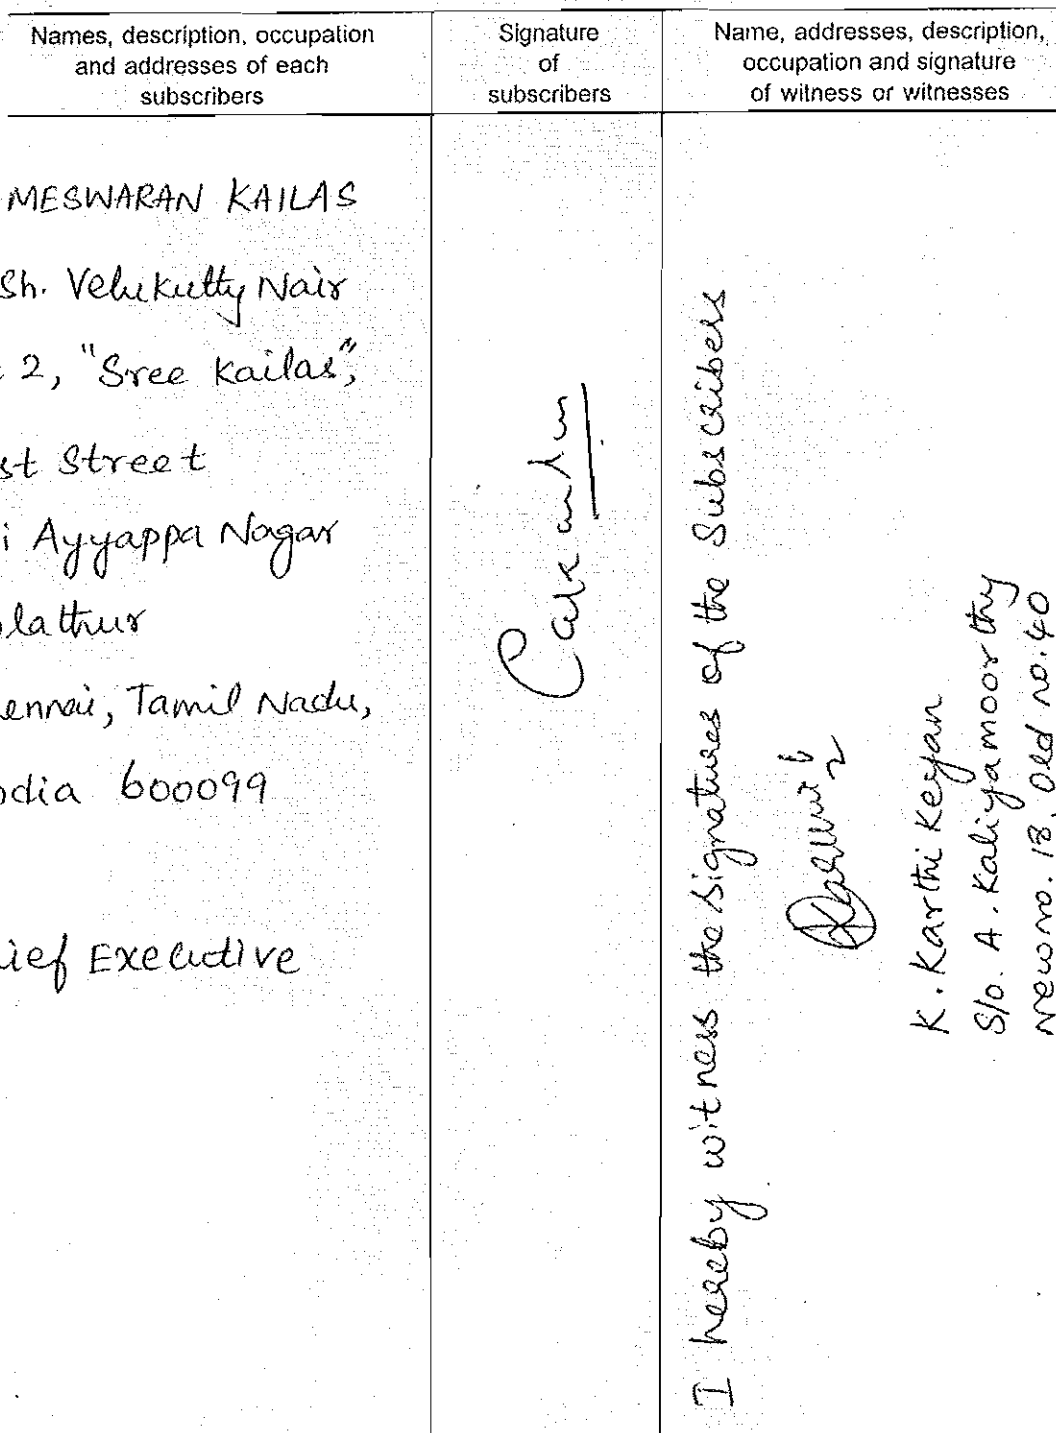 Names, description, occupation
and addresses of each
subscribers
Signature
of
subscribers
Name, addresses, description,
occupation and signature
of witness or witnesses
MESWARAN KAILAS
Sh. Velukutty Nair
2, "Sree Kailas",
st Street
i Ayyappa Nagar
olathur
ennai, Tamil Nadu,
ndia 600099
ief Executive
I hereby witness the signatures of the Subscribers
K. Karthi Keyan
S/o. A. Kaliyamoorthy
New no. 13, Old no. 40